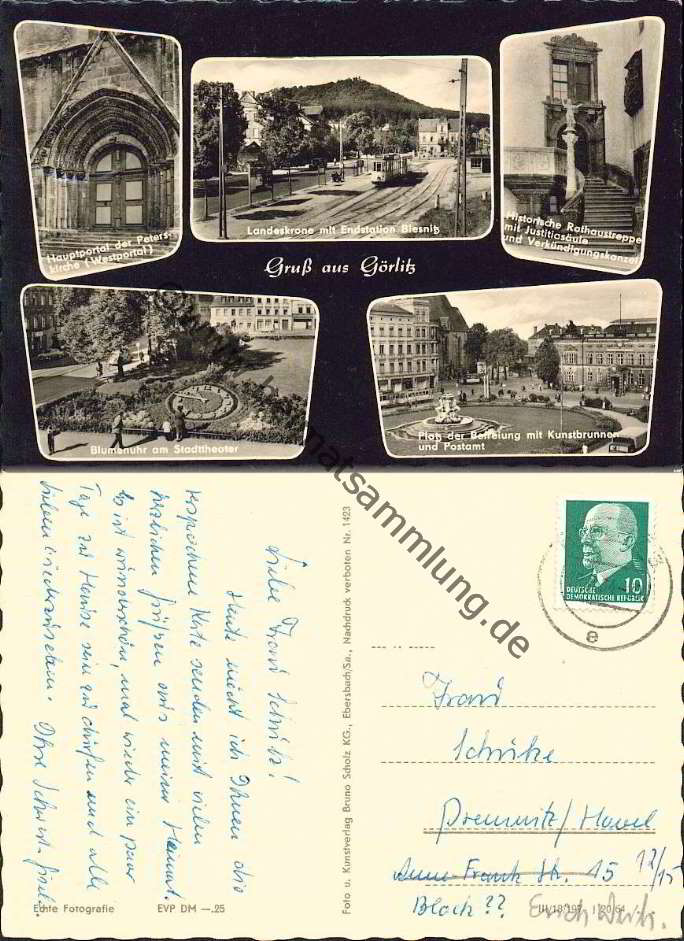 Hauptportal der Peters-
kirche (Westportal)
Landeskrone mit Endstation Biesnitz
Historische Rathaustreppe
mit Justitiasäule
und Verkündigungskanzel
Gruß aus Görlitz
Blumenuhr am Stadttheater
Platz der Befreiung mit Kunstbrunnen
und Postamt
heimatsammlung.de
Liebe Frau Schütze!
Heute möchte ich Ihnen die
versprochene Karte senden mit vielen
herzlichen Grüßen aus meiner Heimat.
Es ist wunderschön, mal wieder ein paar
Tage zu Hause sein zu dürfen und alle
Lieben wiederzusehen. Ihre
Echte Fotografie
EVP DM —.25
Foto u. Kunstverlag Bruno Scholz KG., Ebersbach/Sa., Nachdruck verboten Nr. 1423
10
DEUTSCHE
DEMOKRATISCHE REPUBLIK
e
Frau
Schütze
Premnitz/Havel
Anne Frank Str. 15
Block ??
III/18/197